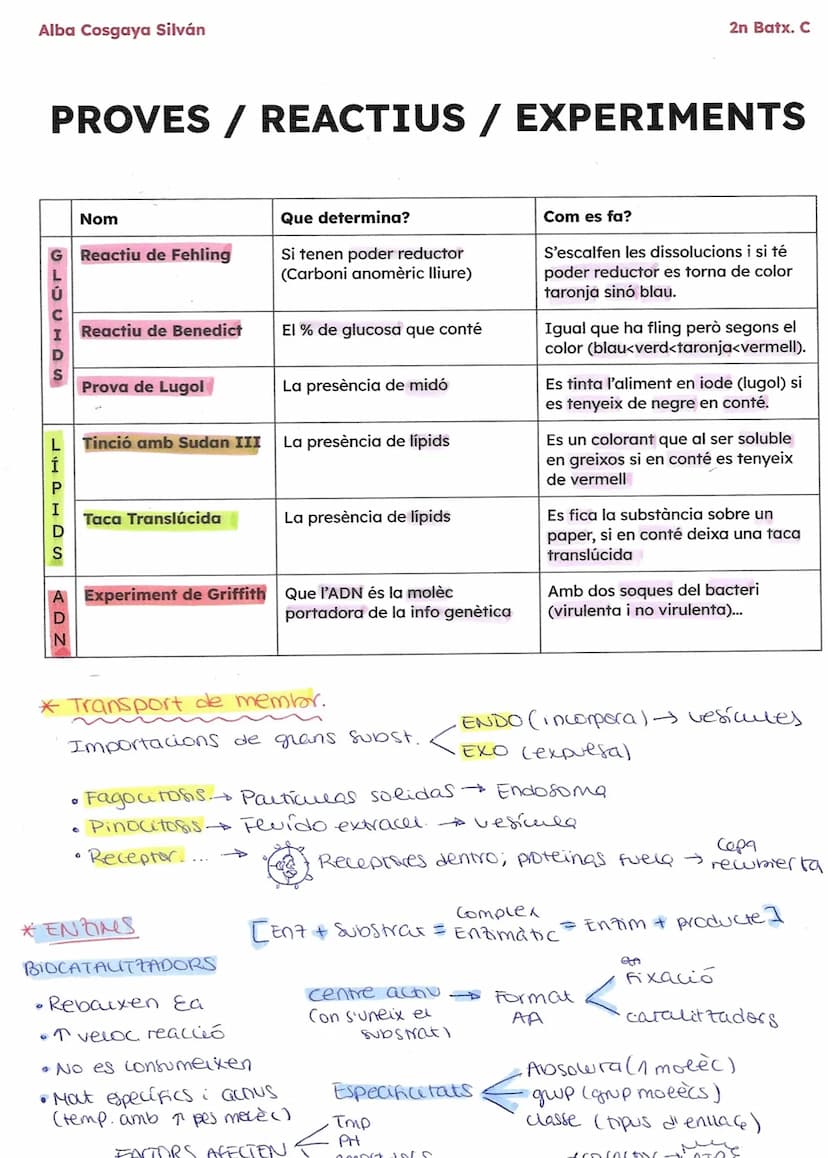 Alba Cosgaya Silván
2n Batx. C
PROVES / REACTIUS / EXPERIMENTS
Nom
Que determina?
Com es fa?
GLÚCIDS
Reactiu de Fehling
Si tenen poder reductor
(Carboni anomèric lliure)
S'escalfen les dissolucions i si té
poder reductor es torna de color
taronja sinó blau.
Reactiu de Benedict
El % de glucosa que conté
Igual que ha fling però segons el
color (blau<verd<taronja<vermell).
Prova de Lugol
La presència de midó
Es tinta l'aliment en iode (lugol) si
es tenyeix de negre en conté.
LÍPIDS
Tinció amb Sudan III
La presència de lípids
Es un colorant que al ser soluble
en greixos si en conté es tenyeix
de vermell
Taca Translúcida
La presència de lípids
Es fica la substància sobre un
paper, si en conté deixa una taca
translúcida
ADN
Experiment de Griffith
Que l'ADN és la molèc
portadora de la info genètica
Amb dos soques del bacteri
(virulenta i no virulenta)...
* Transport de membr.
Importacions de grans subst.
ENDO (incorpora) → vesícules
EXO (expulsa)
• Fagocitosis → Partículas solidas → Endosoma
• Pinocitosis → Fluído extracel. → vesícula
• Receptor. ... → Receptores dentro; proteinas fuera → capa
recubierta
* ENZIMS
[Enz + Substrat = Complex
Enzimàtic = Enzim + producte]
BIOCATALITZADORS
• Rebaixen Ea
• ↑ veloc reacció
• No es consumeixen
• Molt específics i actius
(temp. amb ↑ pes molèc)
centre actiu → Format
(on s'uneix el
substrat)
AA
Fixació
catalitzadors
Especificitats
Absoluta (1 molèc)
grup (grup molècs)
classe (tipus d'enllaç)
FACTORS AFECTEN
Tmp
PH